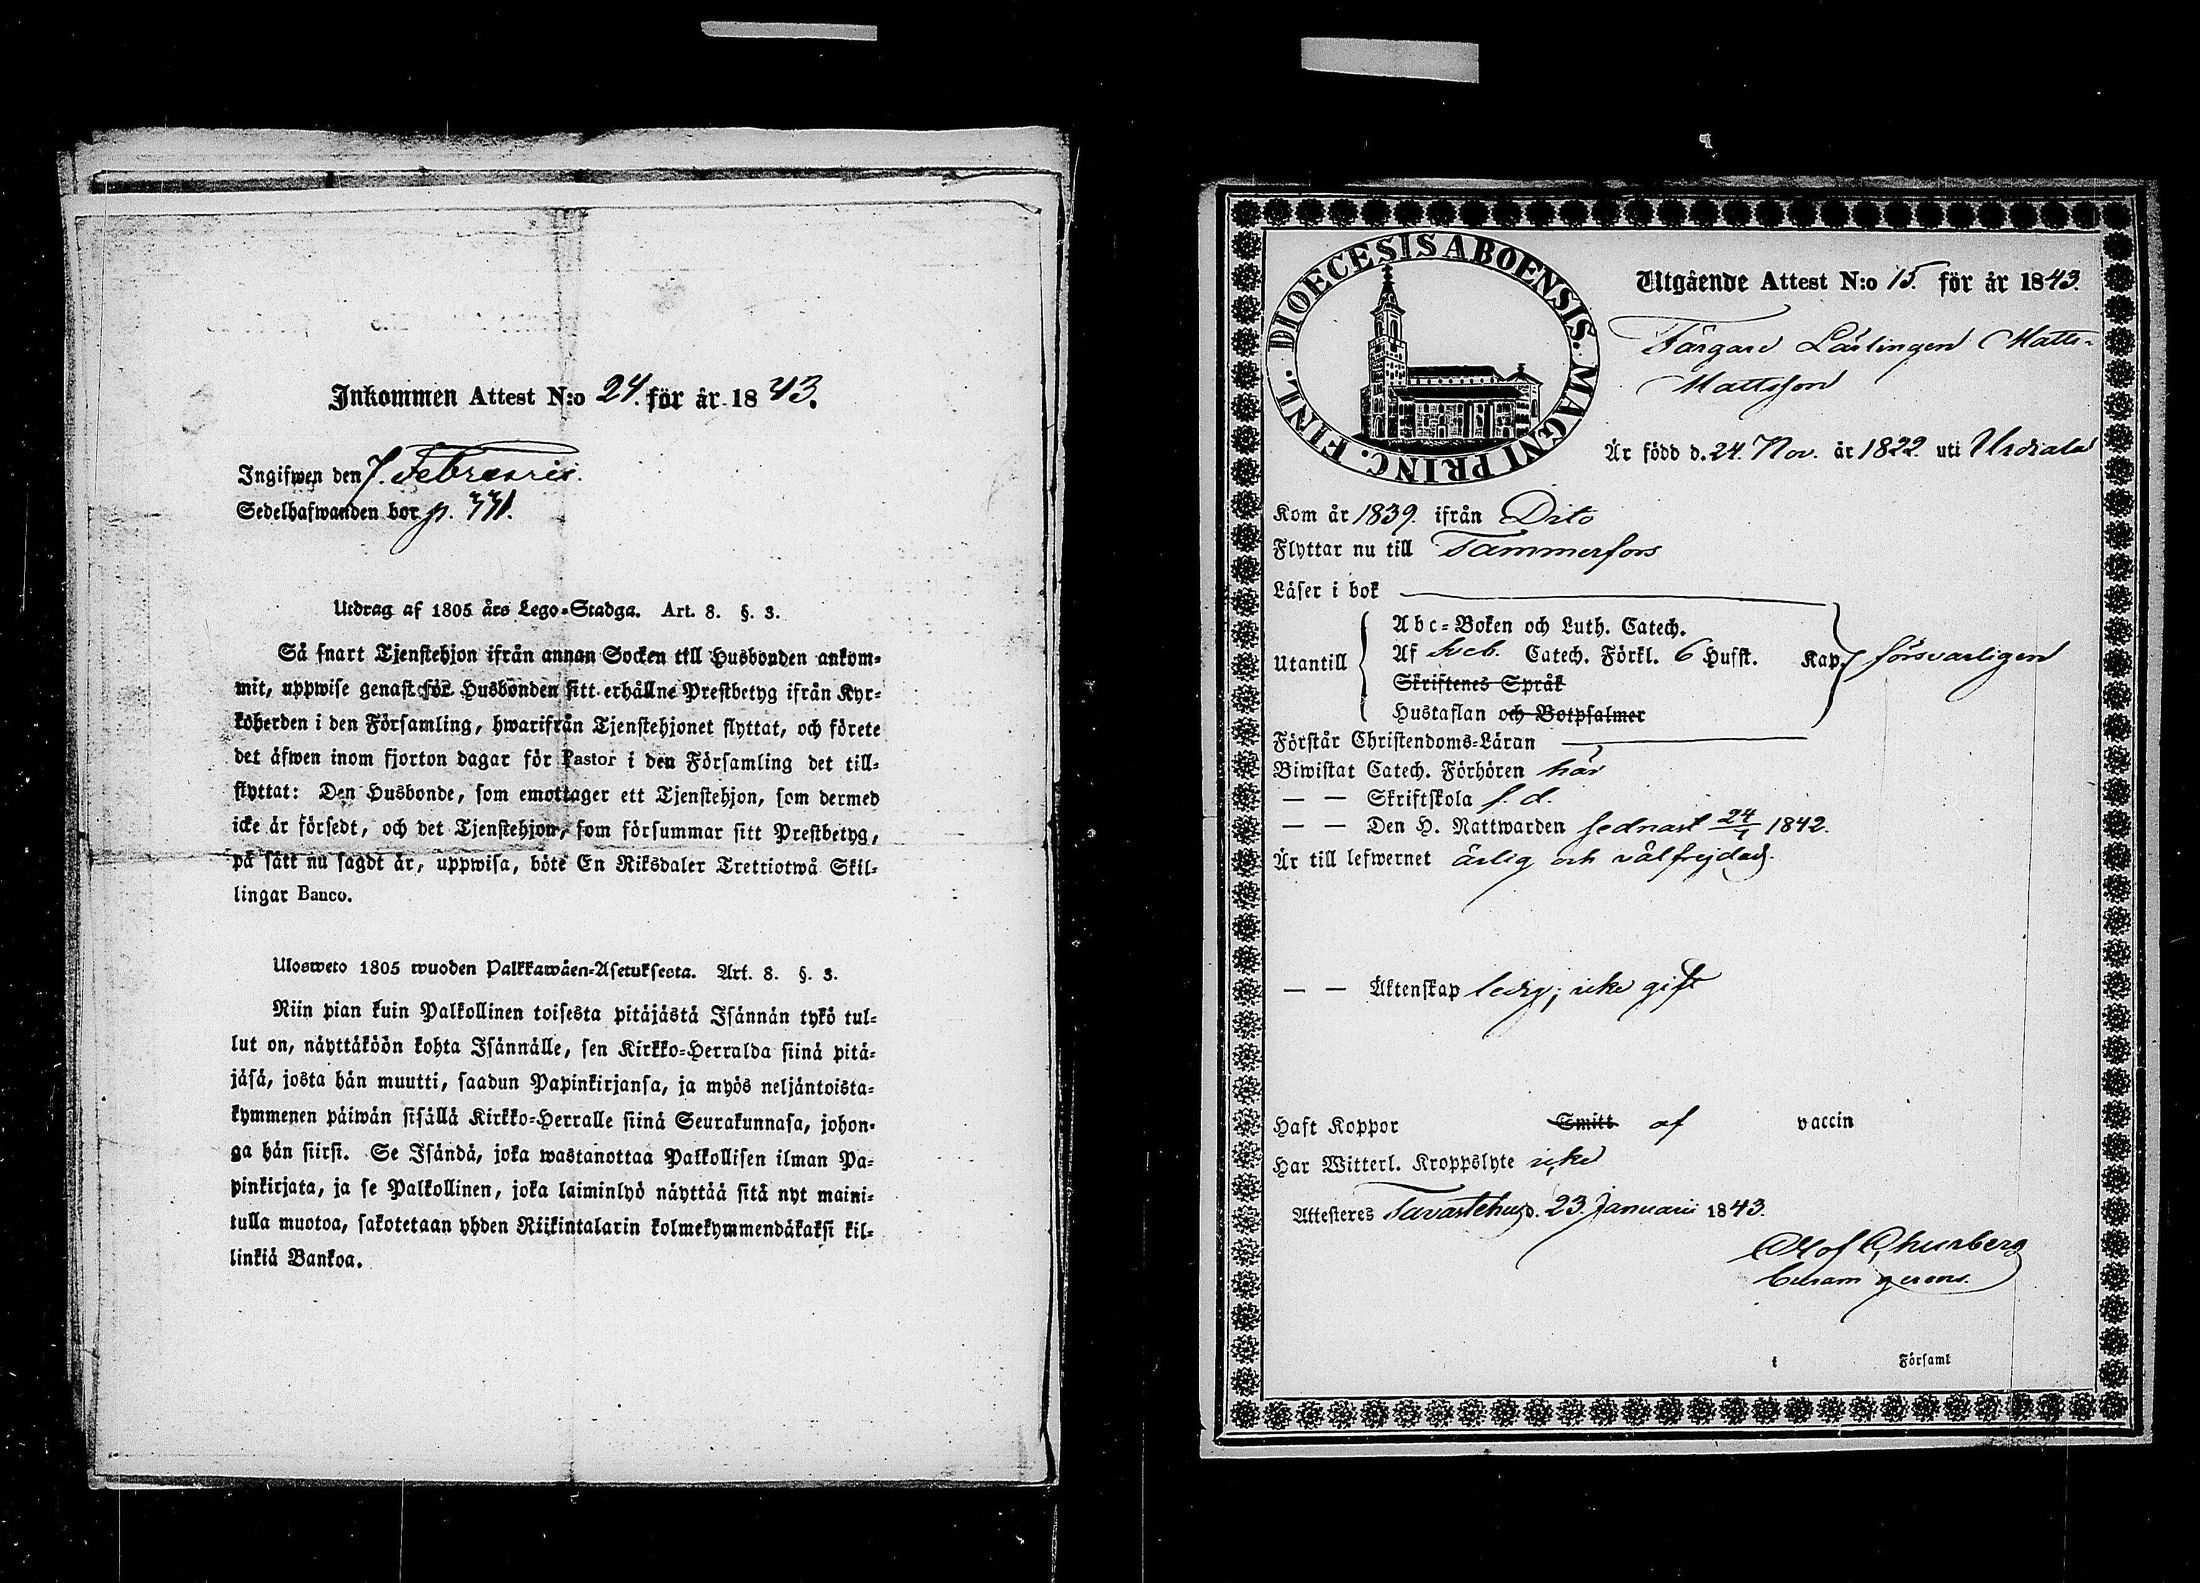 Inkommen Attest N:o 24. för år 1843.
Ingifwen den 7. Februarii.
Sedelhafwanden bor p. 331.
Utdrag af 1805 års Lego-Stadga. Art. 8. §. 3.
Så snart Tjenstehjon ifrån annan Socken till Husbonden ankom-
mit, uppwise genast för Husbonden sitt erhållne Prestbetyg ifrån Kyr-
koherden i den Församling, hwarifrån Tjenstehjonet flyttat, och förete
det äfwen inom fjorton dagar för Pastor i den Församling det till-
flyttat: Den Husbonde, som emottager ett Tjenstehjon, som dermed
icke är försedt, och det Tjenstehjon, som försummar sitt Prestbetyg,
på sätt nu sagdt är, uppwisa, böte En Riksdaler Trettiotwå Skil-
lingar Banco.
Ulosweto 1805 wuoden Palkkawäen-Asetuksesta. Art. 8. §. 3.
Niin pian kuin Palkollinen toisesta pitäjästä Isännän tykö tul-
lut on, näyttäköön kohta Isännälle, sen Kirkko-Herralda siinä pitä-
jäsä, josta hän muutti, saadun Papinkirjansa, ja myös neljäntoista-
kymmenen päiwän sisällä Kirkko-Herralle siinä Seurakunnasa, johon-
ga hän siirsi. Se Isändä, joka wastanottaa Palkollisen ilman Pa-
pinkirjata, ja se Palkollinen, joka laiminlyö näyttää sitä nyt maini-
tulla muotoa, sakotetaan yhden Riikintalarin kolmekymmendäkaksi kil-
linkiä Bankoa.
DIOECESIS ABOENSIS. MAGNI PRINC. FINL.
Utgående Attest N:o 15. för år 1843.
Färgare Lärlingen Matts
Mattsson
Är född d. 24. Nov. år 1822. uti Urdiala
Kom år 1839. ifrån Dito
Flyttar nu till Tammerfors
Läser i bok
Abc-Boken och Luth. Catech.
Utantill Af Sveb. Catech. Förkl. 6 Hufst. Kap. försvarligen
Skriftenes Språk
Hustaflan och Botpsalmer
Förstår Christendoms-Läran
Biwistat Catech. Förhören här
— — Skriftskola s. d.
— — Den H. Nattwarden sednast 24/7 1842.
Är till lefwernet ärlig och välfrejdad.
— — Äktenskap ledig; icke gift
Haft Koppor Smitt af vaccin
Har Witterl. Kroppslyte icke
Attesteres Tavastehus d. 23. Januarii 1843.
Olof Churberg
Curam gerens.
i Församl